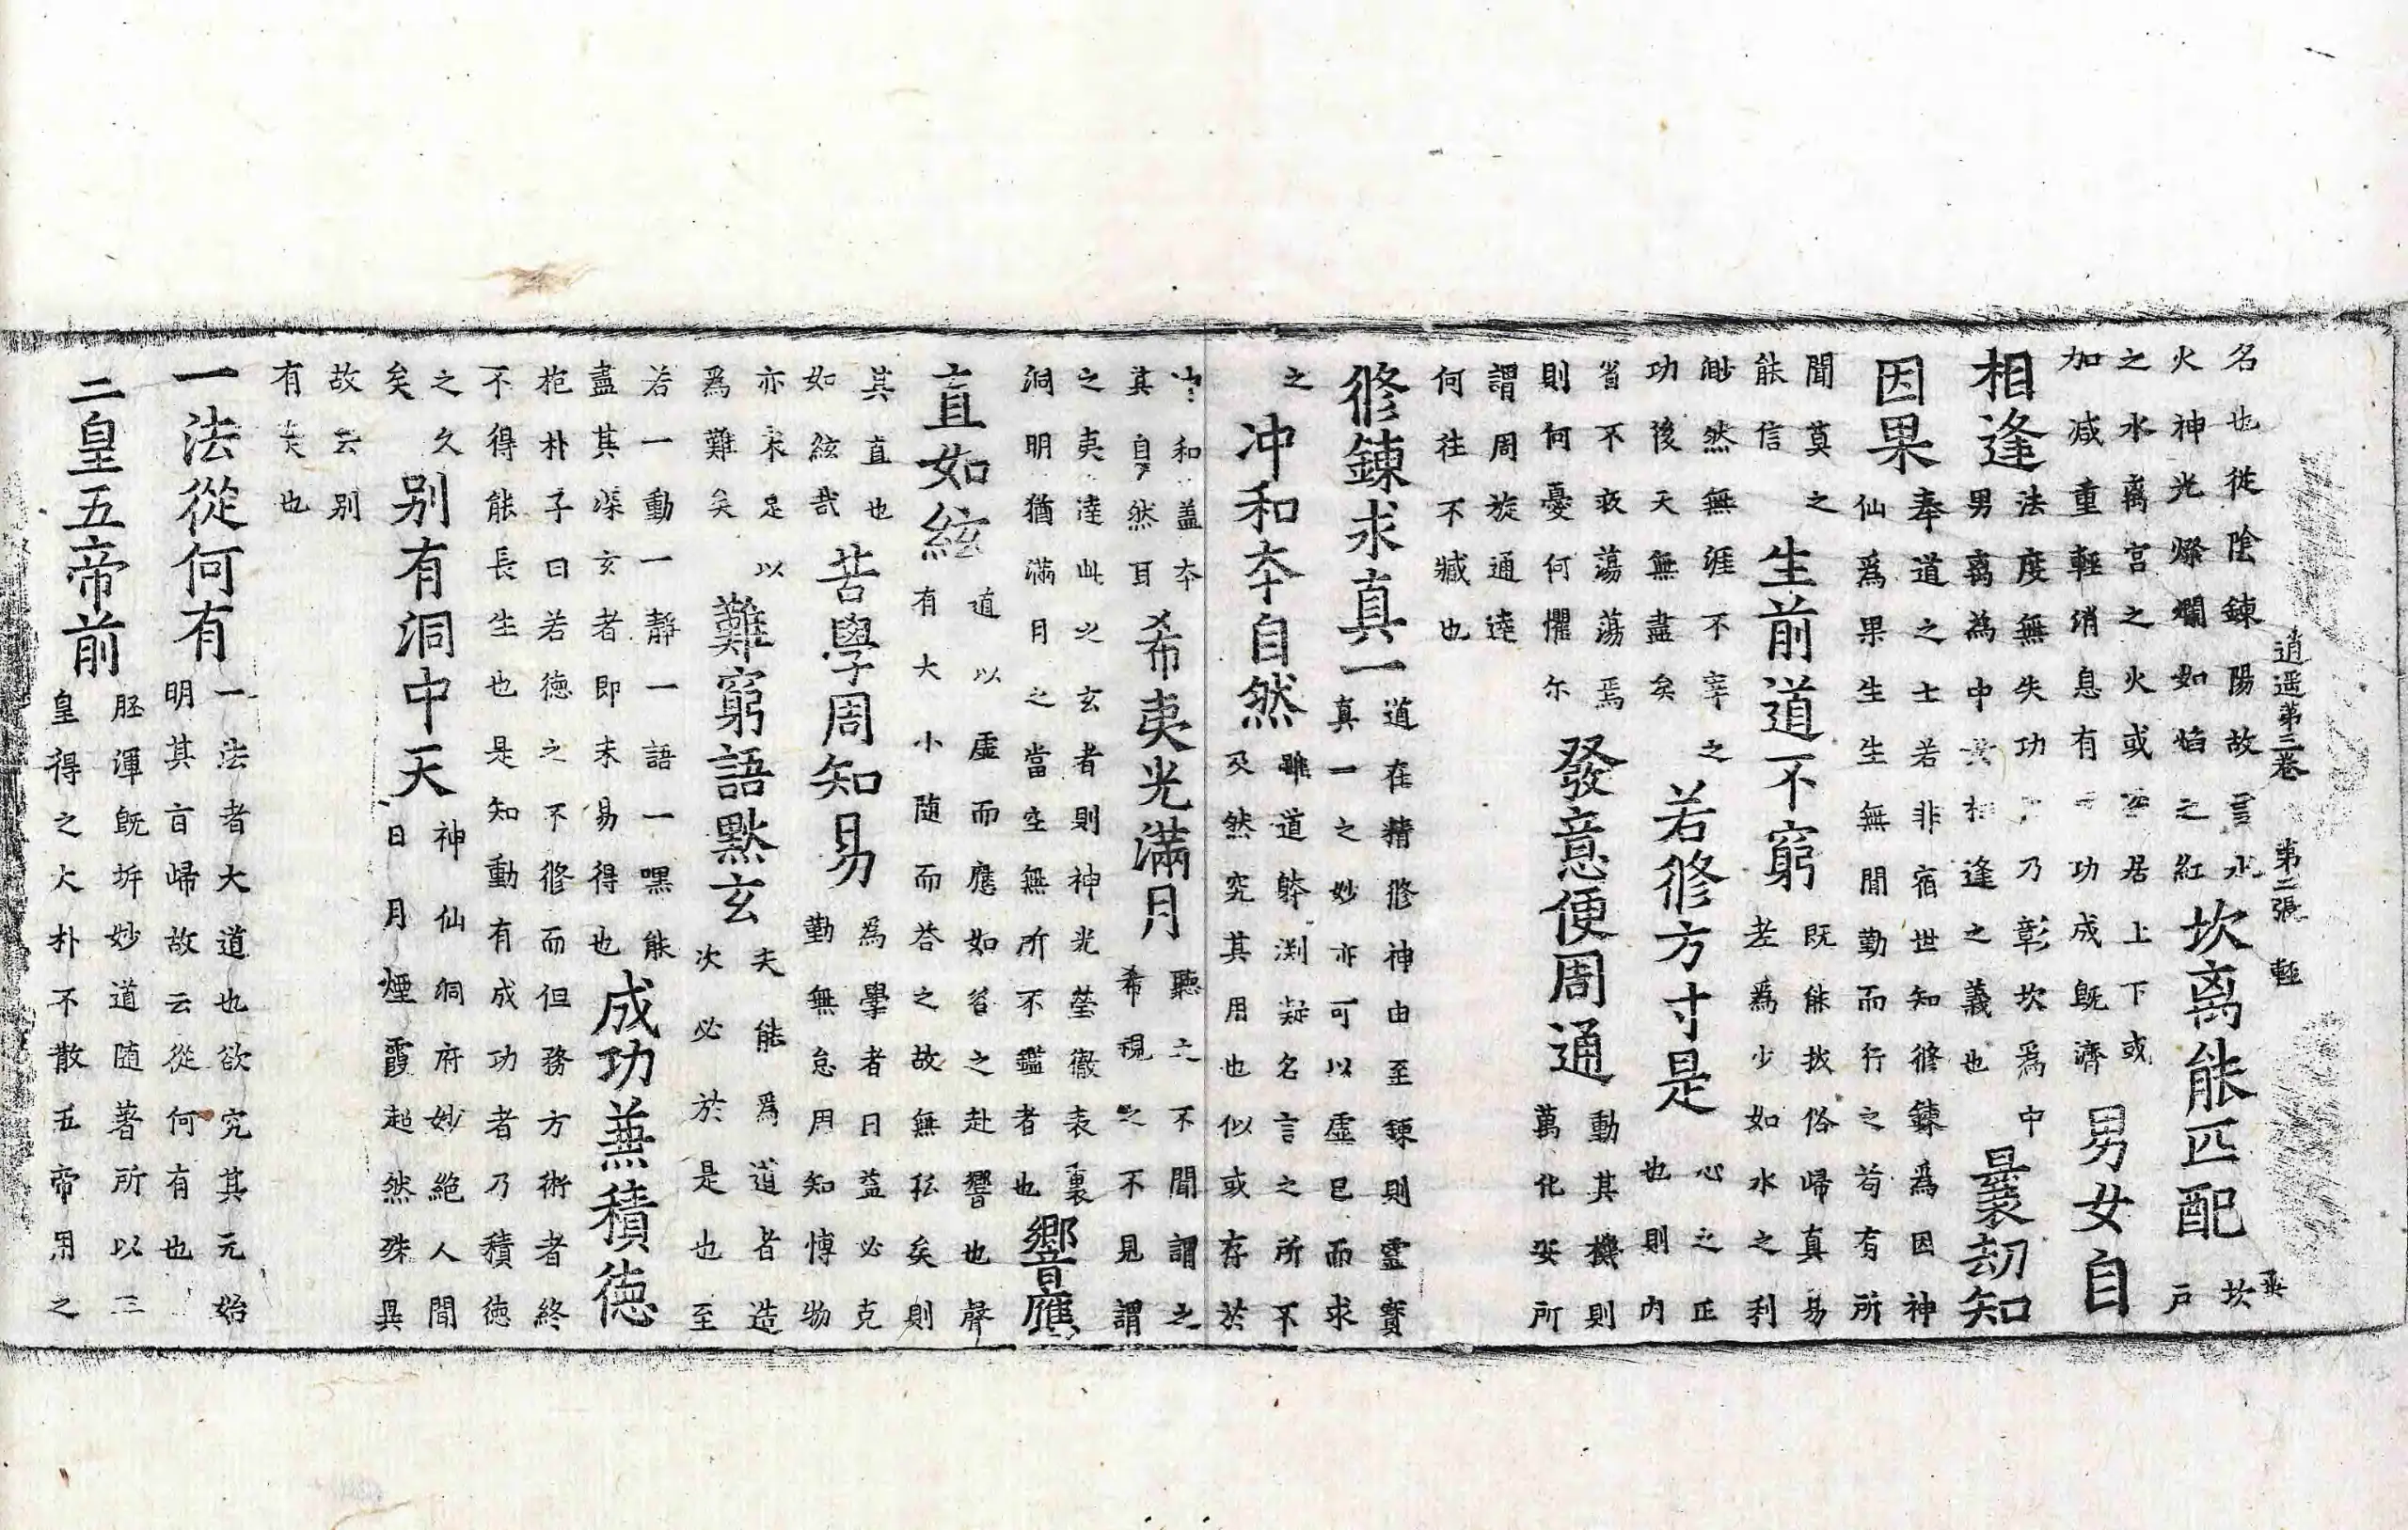 逍遥第三卷 第二張 輕
名也從陰鍊陽故言水
火神光燦爛如焰之紅
坎离能匹配
坎
戶
之水离宮之火或居上下或
加減重輕消息有功成既濟
男女自
相逢
法度無失功乃彰坎爲中
男离為中女相逢之義也
曩刼知
因果
奉道之士若非宿世知修鍊爲因神
仙爲果生生無閒勤而行之苟有所
聞莫之
能信
生前道不窮
既能拔俗歸真易
差爲少如水之利
渺然無涯不宰之
功後天無盡矣
若修方寸是
心之正
也則內
省不疚蕩蕩焉
則何憂何懼尓
發意便周通
動其機則
萬化安所
謂周旋通逹
何往不臧也
修鍊求真一
道在精修神由至鍊則靈寳
真一之妙亦可以虛已而求
之
冲和夲自然
雖道軆渊凝名言之所不
及然究其用也似或存於
冲和盖夲
其自然耳
希夷光滿月
聽之不聞謂之
希視之不見謂
之夷逹此之玄者則神光瑩徹表裏
洞明猶滿月之當空無所不鑑者也
響應
直如絃
道以虛而應如谷之赴響也聲
有大小随而荅之故無私矣則
其直也
如絃哉
苦學周知易
為學者日益必克
勤無怠用知博物
亦未足以
爲難矣
難窮語黙玄
夫能爲道者造
次必於是也至
若一動一靜一語一嘿能
盡其深玄者即未易得也
成功兼積徳
抱朴子曰若徳之不修而但務方術者終
不得能長生也是知動有成功者乃積徳
之久
矣
别有洞中天
神仙洞府妙絶人間
日月煙霞超然殊異
故云别
有天也
一法從何有
一法者大道也欲究其元始
明其旨歸故云從何有也
二皇五帝前
胚渾既坼妙道随著所以三
皇得之大朴不散五帝用之